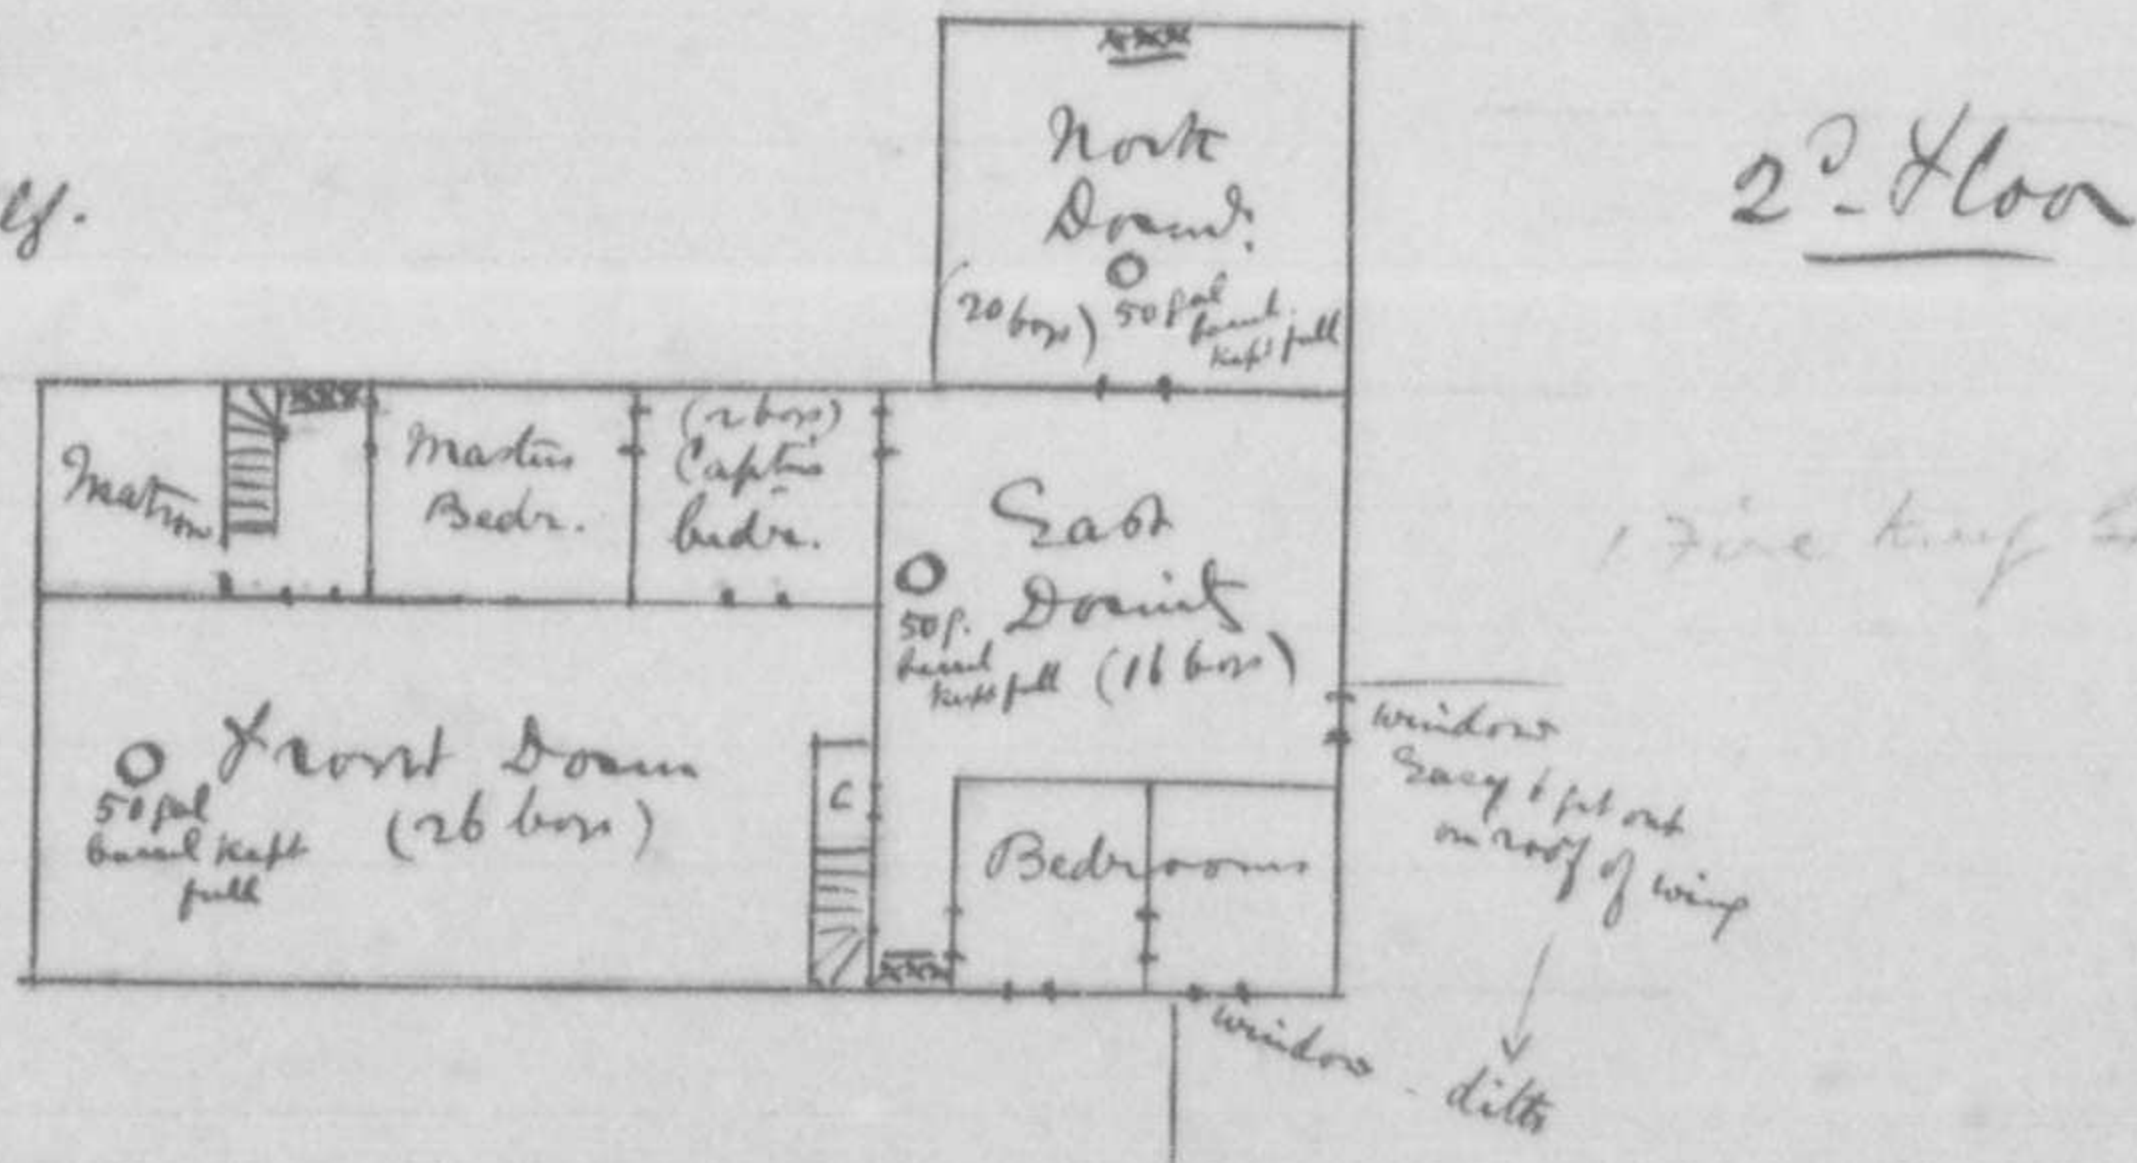 2d Floor
North
Dormd.
(20 boys)
50 gal
barrel
kept full
Matron
Masters
Bedr.
(2 boys)
Captns
bedr.
East
Dormit
(16 boys)
50 g.
barrel
kept full
Front Dorm
(26 boys)
50 gal
barrel kept
full
C
Bedrooms
window
Easy to get out
on roof of wing
window - ditto
Fire